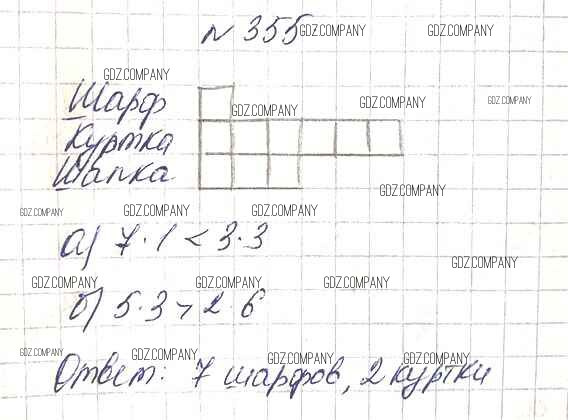 № 355 GDZ.COMPANY GDZ.COMPANY
GDZ.COMPANY
Шарф GDZ.COMPANY GDZ.COMPANY GDZ.COMPANY
Куртка
Шапка GDZ.COMPANY
GDZ.COMPANY GDZ.COMPANY GDZ.COMPANY
а) 7·1 < 3·3
GDZ.COMPANY
GDZ.COMPANY GDZ.COMPANY GDZ.COMPANY
б) 5·3 > 2 6
GDZ.COMPANY GDZ.COMPANY GDZ.COMPANY GDZ.COMPANY
Ответ: 7 шарфов, 2 куртки